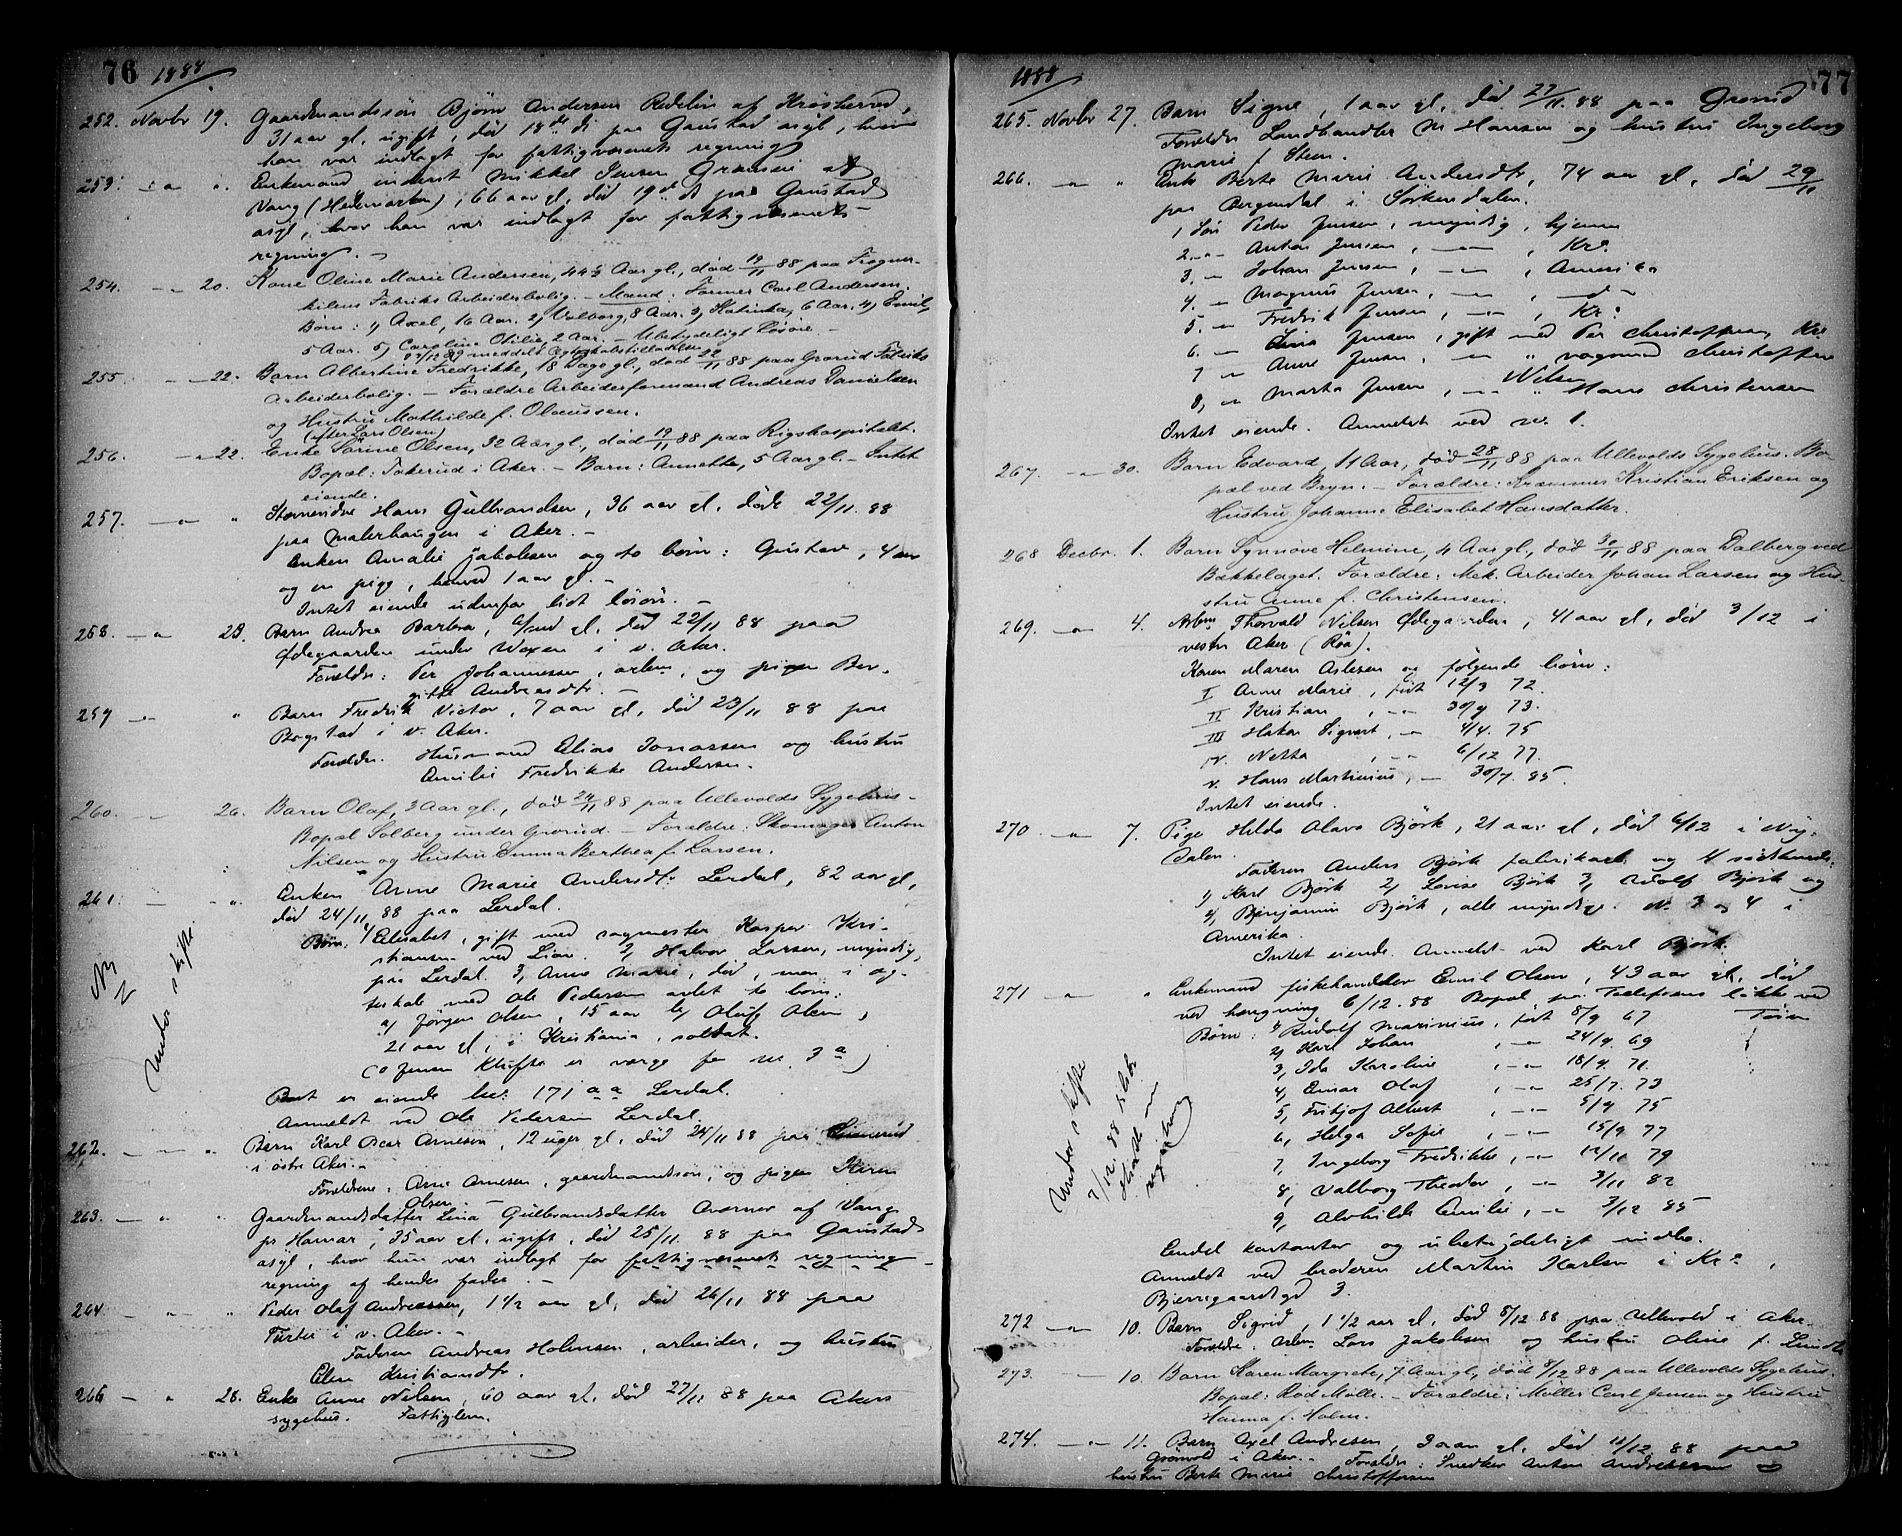 76 1888
252. Novbr 19. Gaardmandssøn Bjørn Andersen Redelien af Krøsherred,
31 aar gl, ugift, død 18de ds paa Gaustad asyl, hvor
han var indlagt for fattigvæsenets regning
253. - " - " Enkemand inderst Mikkel Jensen af
Vang (Hedemarken), 66 aar gl, død 19de ds paa Gaustad
asyl, hvor han var indlagt for fattigvæsenets
regning. -
254. - " - 20. Kone Oline Marie Andersen, 44½ Aar gl., død 19/11 88 paa Frogner-
kilens Fabriks Arbeiderbolig. - Mand: Former Carl Andersen.
Børn: 1) Axel, 16 Aar. 2) Valborg, 8 Aar. 3) Katinka, 6 Aar. 4) Emil,
5 Aar. 5) Caroline Otilie, 2 Aar. - Ubetydeligt Løsøre. -
89 meddelt
255. - " - 22. Barn Albertine Fredrikke, 18 Dage gl., død 22/11 88 paa Grorud Fabriks
Arbeiderbolig. - Forældre Arbeiderformand Andreas Danielsen
og Hustru Mathilde f. Olaussen.
(efter Lars Olsen)
256. - " 22. Enke Sørine Olsen, 32 Aar gl., død 19/11 88 paa Rigshospitalet.
Bopæl: Tokerud i Aker. - Barn: Annette, 5 Aar gl. - Intet
eiende.
257. - " - " Hans Gulbrandsen, 36 aar gl, døde 22/11 88
paa Malerhaugen i Aker. -
Enken Amalie Jakobsen og to børn: Gustav, 4 aar
og en pige, 1 aar gl. -
Intet eiende udenfor lidt løsøre. -
258. - " 23. Barn Andrea Barbra, gl, død 22/11 88 paa
Ødegaarden under Voxen i v. Aker.
Forældre: Per Johannessen, arbm, og pigen Ber-
gitte Andreasdtr. -
259 - " - " Barn Fredrik Victor, 7 aar gl, død 23/11 88 paa
Bogstad i v. Aker.
Forældre. Husmand Elias Jonassen og hustru
Amilie Fredrikke Andersen.
260. - " - 26. Barn Olaf, 3 Aar gl., død 24/11 88 paa Ullevolds Sygehus -
Bopæl Solberg under Grorud. - Forældre: Skomager Anton
Nilsen og Hustru Emma Berthea f. Larsen.
261. - - " Enken Anne Marie Andersdtr Lerdal, 82 aar gl,
død 24/11 88 paa Lerdal.
Børn: 1/ Elisabet, gift med sagmester Kasper Kri-
stiansen ved Lian. 2, Halvor Larsen, myndig,
paa Lerdal. 3, Anne Marie, død, men i æg-
teskab med Ole Pedersen avlet to børn:
a) Jørgen Olsen, 15 aar b) Oluf Olsen,
21 aar gl, i Kristiania, soldat.
(O Jensen Klufta er værge for nr. 3 a)
Boet er eiende br.nr. 171 aa Lerdal.
Anmeldt ved Ole Pedersen Lerdal.
Under skifte
262. - " - " Barn Karl Oscar Arnesen, 12 uger gl, død 24/11 88 paa
i østre Aker. -
Forældrene: Arne Arnesen, gaardmandssøn, og pigen Karen
Olsen. -
263. - " " Gaardmandsdatter Lina Gulbrandsdatter af Vang
pr Hamar, 35 aar gl, ugift, død 25/11 88 paa Gaustad
asyl, hvor hun var indlagt for fattigvæsenets regning -
regning af hendes fader. -
264. - " - " Peder Olaf Andreassen, 1½ aar gl, død 26/11 88 paa
i v. Aker. -
Faderen Andreas Holmsen, arbeider, og hustru
Elen Kristiansdtr.
265 - " 28. Enke Anne Nilsen, 60 aar gl, død 27/11 88 paa Akers
sygehus. Fattiglem.
1888 77
265. Novbr 27. Barn Signe, 1 aar gl, død 27/11 88 paa Grorud
Forældre Landhandler M Hansen og hustru Ingeborg
Marie f. Steen.
266. - " - " Enke Berte Marie Andersdtr, 74 aar gl, død 29/11
paa Bergendal i Sørkendalen.
1, Søn Peder Jensen, myndig, hjemme
2, - " - Anton Jensen, - " - , Kra.
3, - " Johan Jensen, - " - , Amerika
4, - " Magnus Jensen, - " - , - " -
5, - " Fredrik Jensen, - " - , Kra.
6, - " Lina Jensen, gift med Per Christoffersen, Kra.
7 - " Anne Jensen, - " - " vognmand Christoffer
Nilsen
8, - " Marta Jensen, - " - " Hans Christensen
Intet eiende. Anmeldt ved nr. 1.
267. - " - 30. Barn Edvard, 11 Aar, død 28/11 88 paa Ullevolds Sygehus. Bo-
pæl ved Bryn. - Forældre: Kræmmer Kristian Eriksen og
Hustru Johanne Elisabet Hansdatter.
268 Decbr. 1. Barn Synnøve Helmine, 4 Aar gl., død 30/11 88 paa Dalberg ved
Bækkelaget. Forældre: Mek. Arbeider Johan Larsen og Hus-
stru Anne f. Christensen.
269. - " - 4. Arbm Thorvald Nilsen Ødegaarden, 41 aar gl, død 3/12 i
vestre Aker (Røa).
Konen Maren Aslesen og følgende børn:
I Anne Marie, født 12/3 72.
II Kristian, - " - 30/9 73.
III Hakon Sigvart, - " 4/4. 75
IV. Netta, - " - 6/12 77.
V. Hans Martinius, - 30/7. 85.
Intet eiende.
270 - " - 7. Pige Hilda Olava Bjørk, 21 aar gl, død 6/12 i Ny-
dalen.
Faderen Anders Bjørk fabrikarb og 4 sødskende:
1) Karl Bjørk 2, Lovise Bjørk 3, Adolf Bjørk og
4, Benjamin Bjørk, alle myndige. Nr. 3 og 4 i
Amerika.
Intet eiende. Anmeldt ved Karl Bjørk.
271 - " - " Enkemand fiskehandler Emil Olsen, 43 aar gl, død
ved hængning 6/12. 88 Bopæl paa løkke ved
Tøien
Børn: 1/ Rudolf Marinius, født 8/9 67
2, Karl Johan, - " - 24/9. 69
3, Ida Karoline, - " - 18/9. 71.
4, Einar Olaf, - " - 25/7. 73
5, Fritjof Albert, - " - 5/9 75
6, Helga Sofie, - " - 15/9 77
7, Ingeborg Fredrikke, - " - 12/11 79
8, Valborg Theodor, - " - 3/11 82
9, Alvhilde Emilie, - " 3/12 85
Endel kontanter og ubetydeligt indbo.
Anmeldt ved broderen Martin Karlsen i Kra,
Bjerregaardsgd 3.
Under skifte
7/12. 88
registrering
272 - " - 10. Barn Sigrid, 1 1/2 aar gl, død 8/12 88 paa Ullevold i Aker.
Forældre. Arbm Lars Jakobsen og hustru Oline f. Lunde
273. - 10. Barn Karen Margrete, 7 Aar gl, død 8/12 88 paa Ullevolds Sygehus.
Bopæl: Rød Mølle. - Forældre: Møller Carl Jensen og Hustru
Hanna f. Holm.
274. - " - 11. Barn Axel Andresen, 3 aar gl, død 10/12 88 paa
Grønvold i Aker. - Forældre: Snedker Anton Andreassen og
hustru Berte Marie Christoffersen